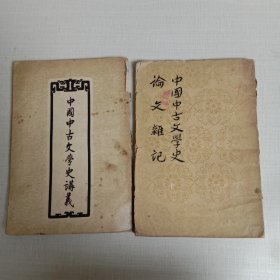 中國中古文學史講義
中國中古文學史
論文雜記